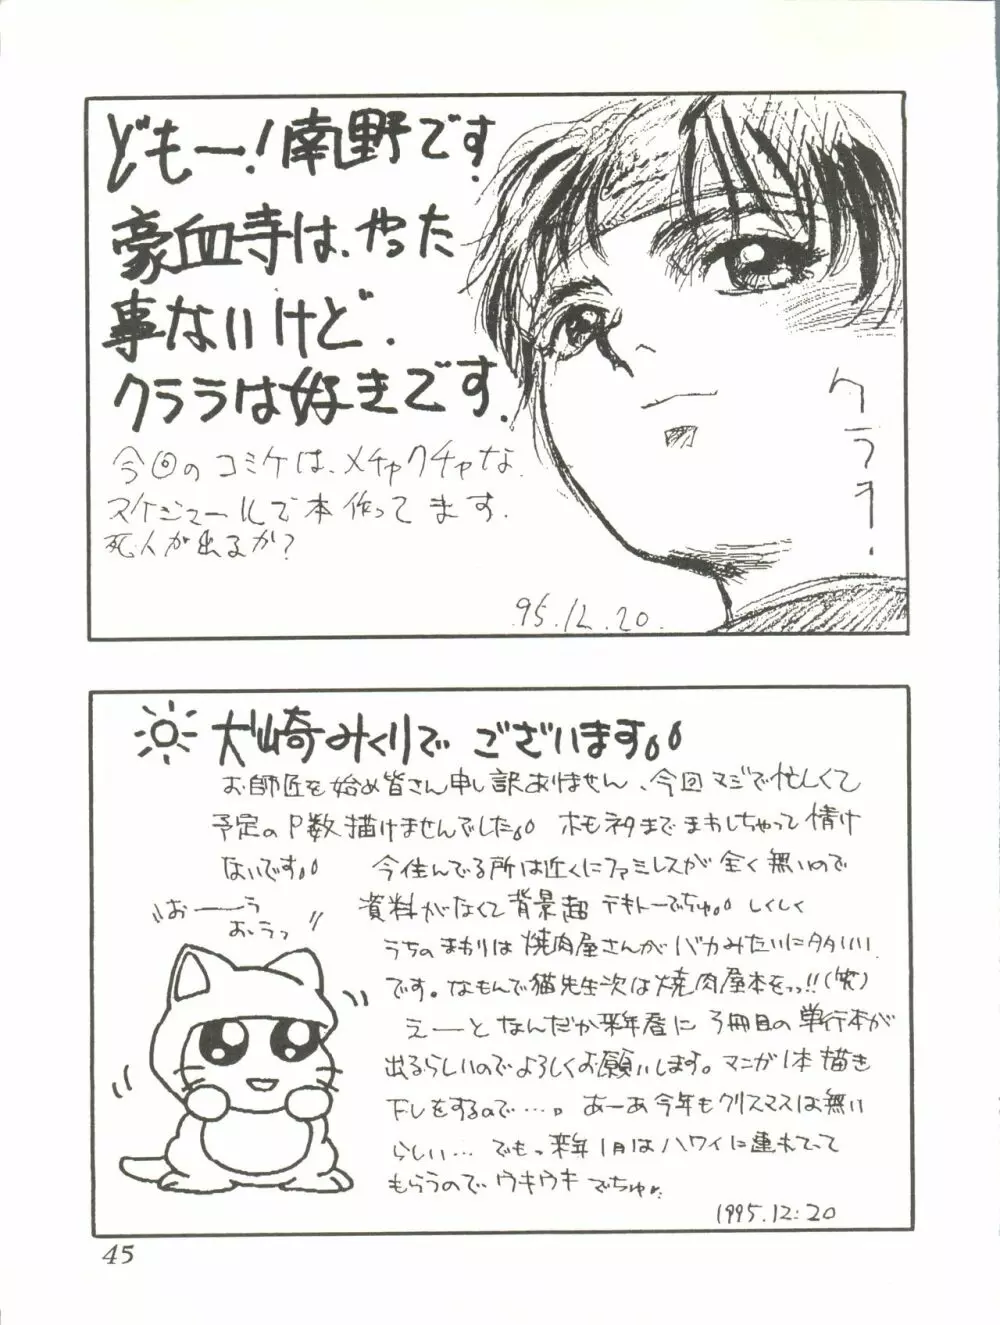 どもー!南野です!
豪血寺は、やった
事ないけど、
クララは好きです.
クララ.
今回のコミケは、メチャクチャな
スケジュールで本作ってます.
死人が出るか?
95.12.20.
犬崎みくりで ございます。。
お師匠を始め皆さん申し訳ありません、今回マジで忙しくて
予定のP数描けませんでした。。 ホモネタまでまわしちゃって情け
ないです。。 今住んでる所は近くにファミレスが全く無いので
資料がなくて背景超テキトーでちゅ。。 しくしく
うちのまわりは焼肉屋さんがバカみたいに多い
です。なもんで猫先生次は焼肉屋本をっっ!!(笑)
えーと なんだか来年春に3冊目の単行本が
出るらしいのでよろしくお願いします。マンガ1本描き
下しをするので…。 あーあ今年もクリスマスは無い
らしい… でもっ来年1月はハワイに連れてって
もらうのでウキウキでちゅ♪
おーーぅ
おぅっ
1995.12.20
45